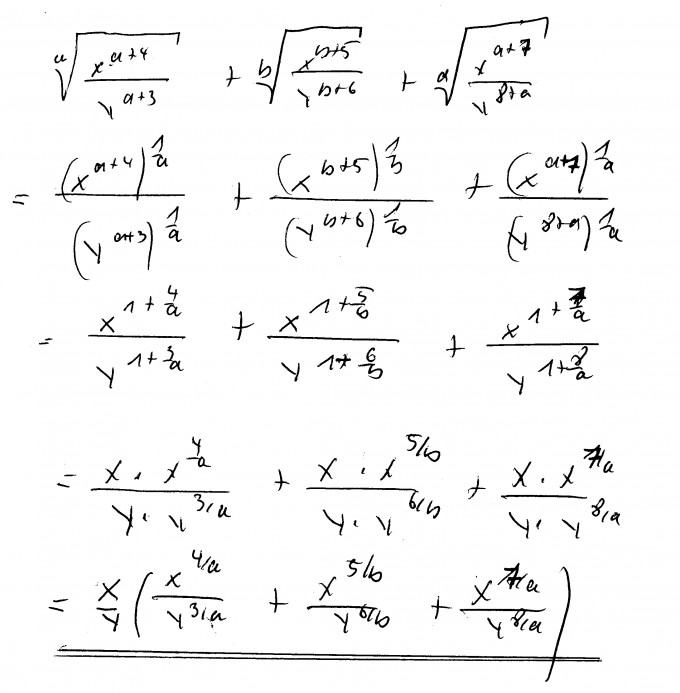 \sqrt[a]{\frac{x^{a+4}}{y^{a+3}}} + \sqrt[b]{\frac{x^{b+5}}{y^{b+6}}} + \sqrt[a]{\frac{x^{a+7}}{y^{8+a}}}
= \frac{(x^{a+4})^{\frac{1}{a}}}{(y^{a+3})^{\frac{1}{a}}} + \frac{(x^{b+5})^{\frac{1}{b}}}{(y^{b+6})^{\frac{1}{b}}} + \frac{(x^{a+7})^{\frac{1}{a}}}{(y^{8+a})^{\frac{1}{a}}}
= \frac{x^{1+\frac{4}{a}}}{y^{1+\frac{3}{a}}} + \frac{x^{1+\frac{5}{b}}}{y^{1+\frac{6}{b}}} + \frac{x^{1+\frac{7}{a}}}{y^{1+\frac{8}{a}}}
= \frac{x \cdot x^{\frac{4}{a}}}{y \cdot y^{3/a}} + \frac{x \cdot x^{5/b}}{y \cdot y^{6/b}} + \frac{x \cdot x^{7/a}}{y \cdot y^{8/a}}
= \frac{x}{y} \left( \frac{x^{4/a}}{y^{3/a}} + \frac{x^{5/b}}{y^{6/b}} + \frac{x^{7/a}}{y^{8/a}} \right)